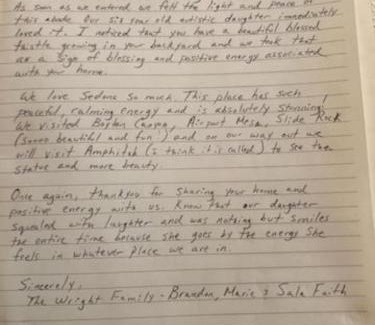 As soon as we entered we felt the light and peace of
this abode. Our six year old artistic daughter immediately
loved it. I noticed that you have a beautiful blessed
thistle growing in your backyard and we took that
as a sign of blessing and positive energy associated
with your home.
We love Sedona so much. This place has such
peaceful, calming energy and is absolutely stunning!
We visited Boyton Canyon, Airport Mesa, Slide Rock
(soooo beautiful and fun!) and on our way out we
will visit Amphitah (I think it is called) to see the
statue and more beauty.
Once again, thankyou for sharing your home and
positive energy with us. Know that our daughter
squealed with laughter and was nothing but smiles
the entire time because she goes by the energy she
feels in whatever place we are in.
Sincerely,
The Wright Family - Brandon, Marie & Sala Faith